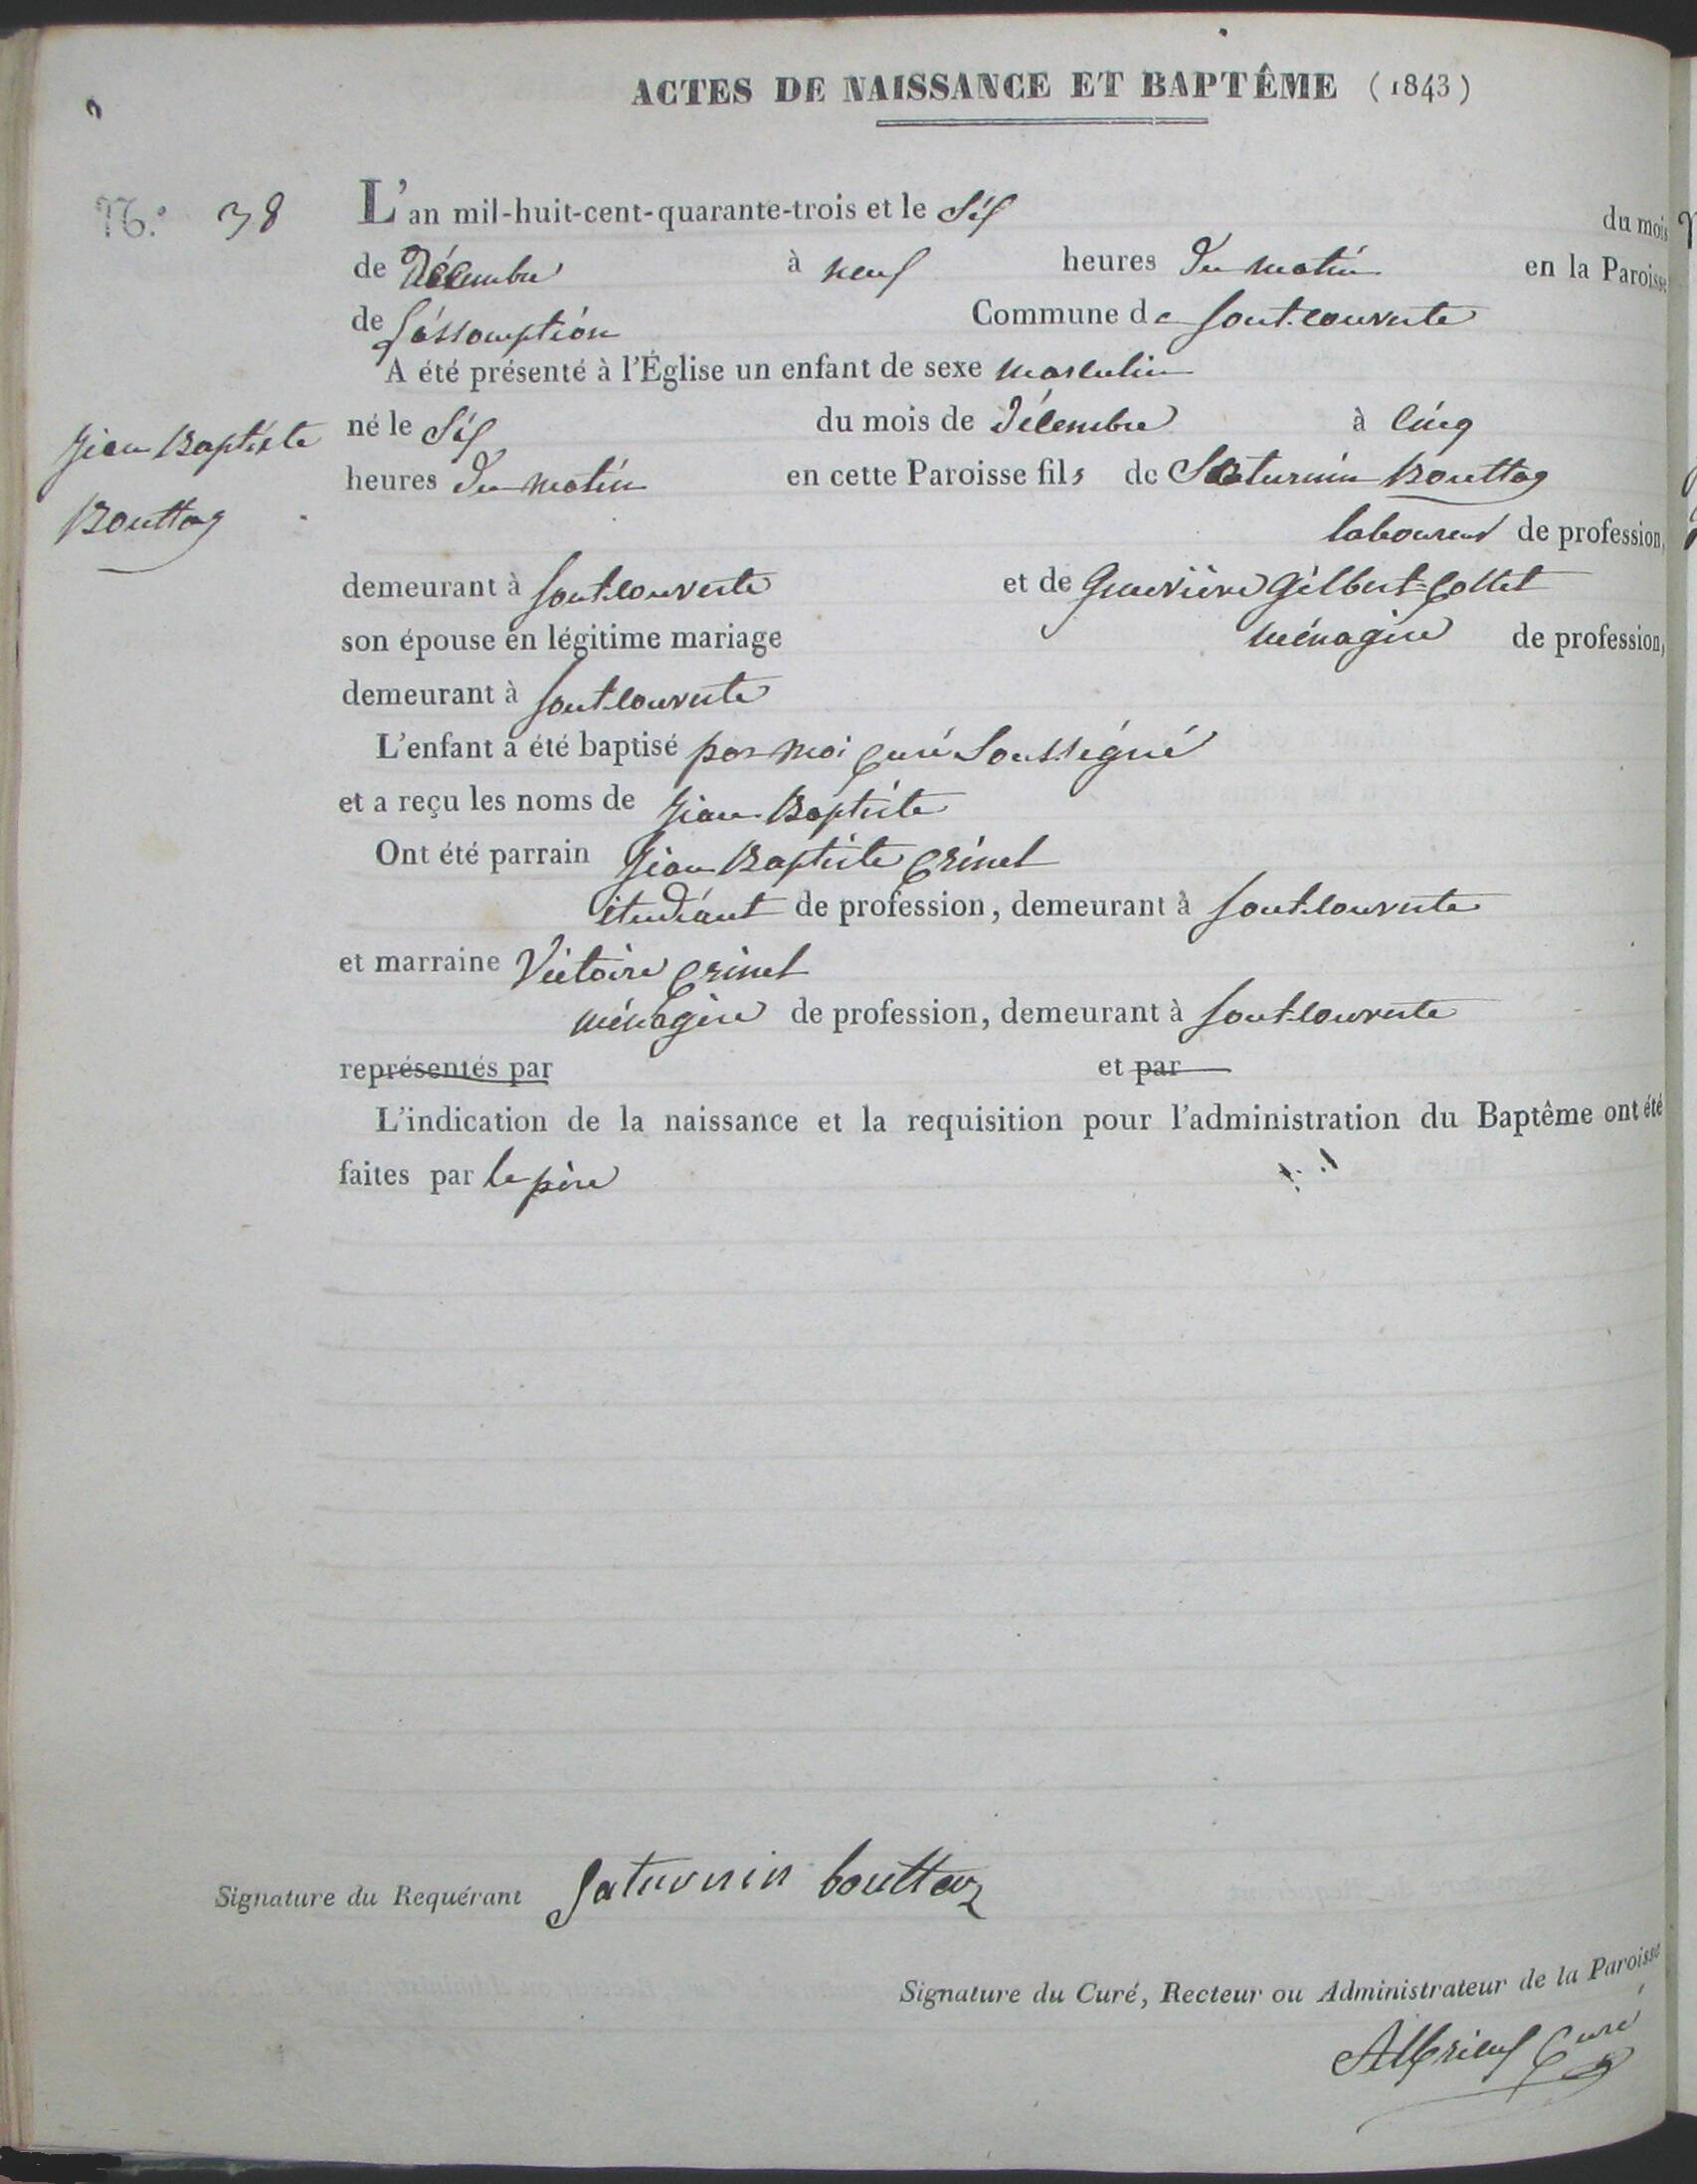 ACTES DE NAISSANCE ET BAPTÊME (1843)
N.º 38
L'an mil-huit-cent-quarante-trois et le Six du mois
de Décembre à neuf heures du matin en la Paroisse
de l'assomption Commune de fontcouverte
A été présenté à l'Église un enfant de sexe masculin
Jean Baptiste
Bouttaz
né le Six du mois de Décembre à cinq
heures du matin en cette Paroisse fils de Saturnin Bouttaz
laboureur de profession,
demeurant à fontcouverte et de Genevière Gilbert=Collet
son épouse en légitime mariage ménagère de profession,
demeurant à fontcouverte
L'enfant a été baptisé par moi curé Soussigné
et a reçu les noms de Jean Baptiste
Ont été parrain Jean Baptiste Crinel
étudiant de profession, demeurant à fontcouverte
et marraine Victoire Crinel
ménagère de profession, demeurant à fontcouverte
représentés par et par
L'indication de la naissance et la requisition pour l'administration du Baptême ont été
faites par le père
Signature du Requérant Saturnin bouttaz
Signature du Curé, Recteur ou Administrateur de la Paroisse
Curé